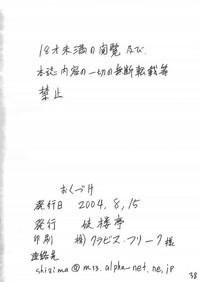 18才未満の閲覧及び
本誌内容の一切の無断転載等
禁止
おくづけ
発行日 2004.8.15
発行 侠樓亭
印刷 ㈲クラビス・フリーク様
連絡先
shizima@m13.alpha-net.ne.jp
38